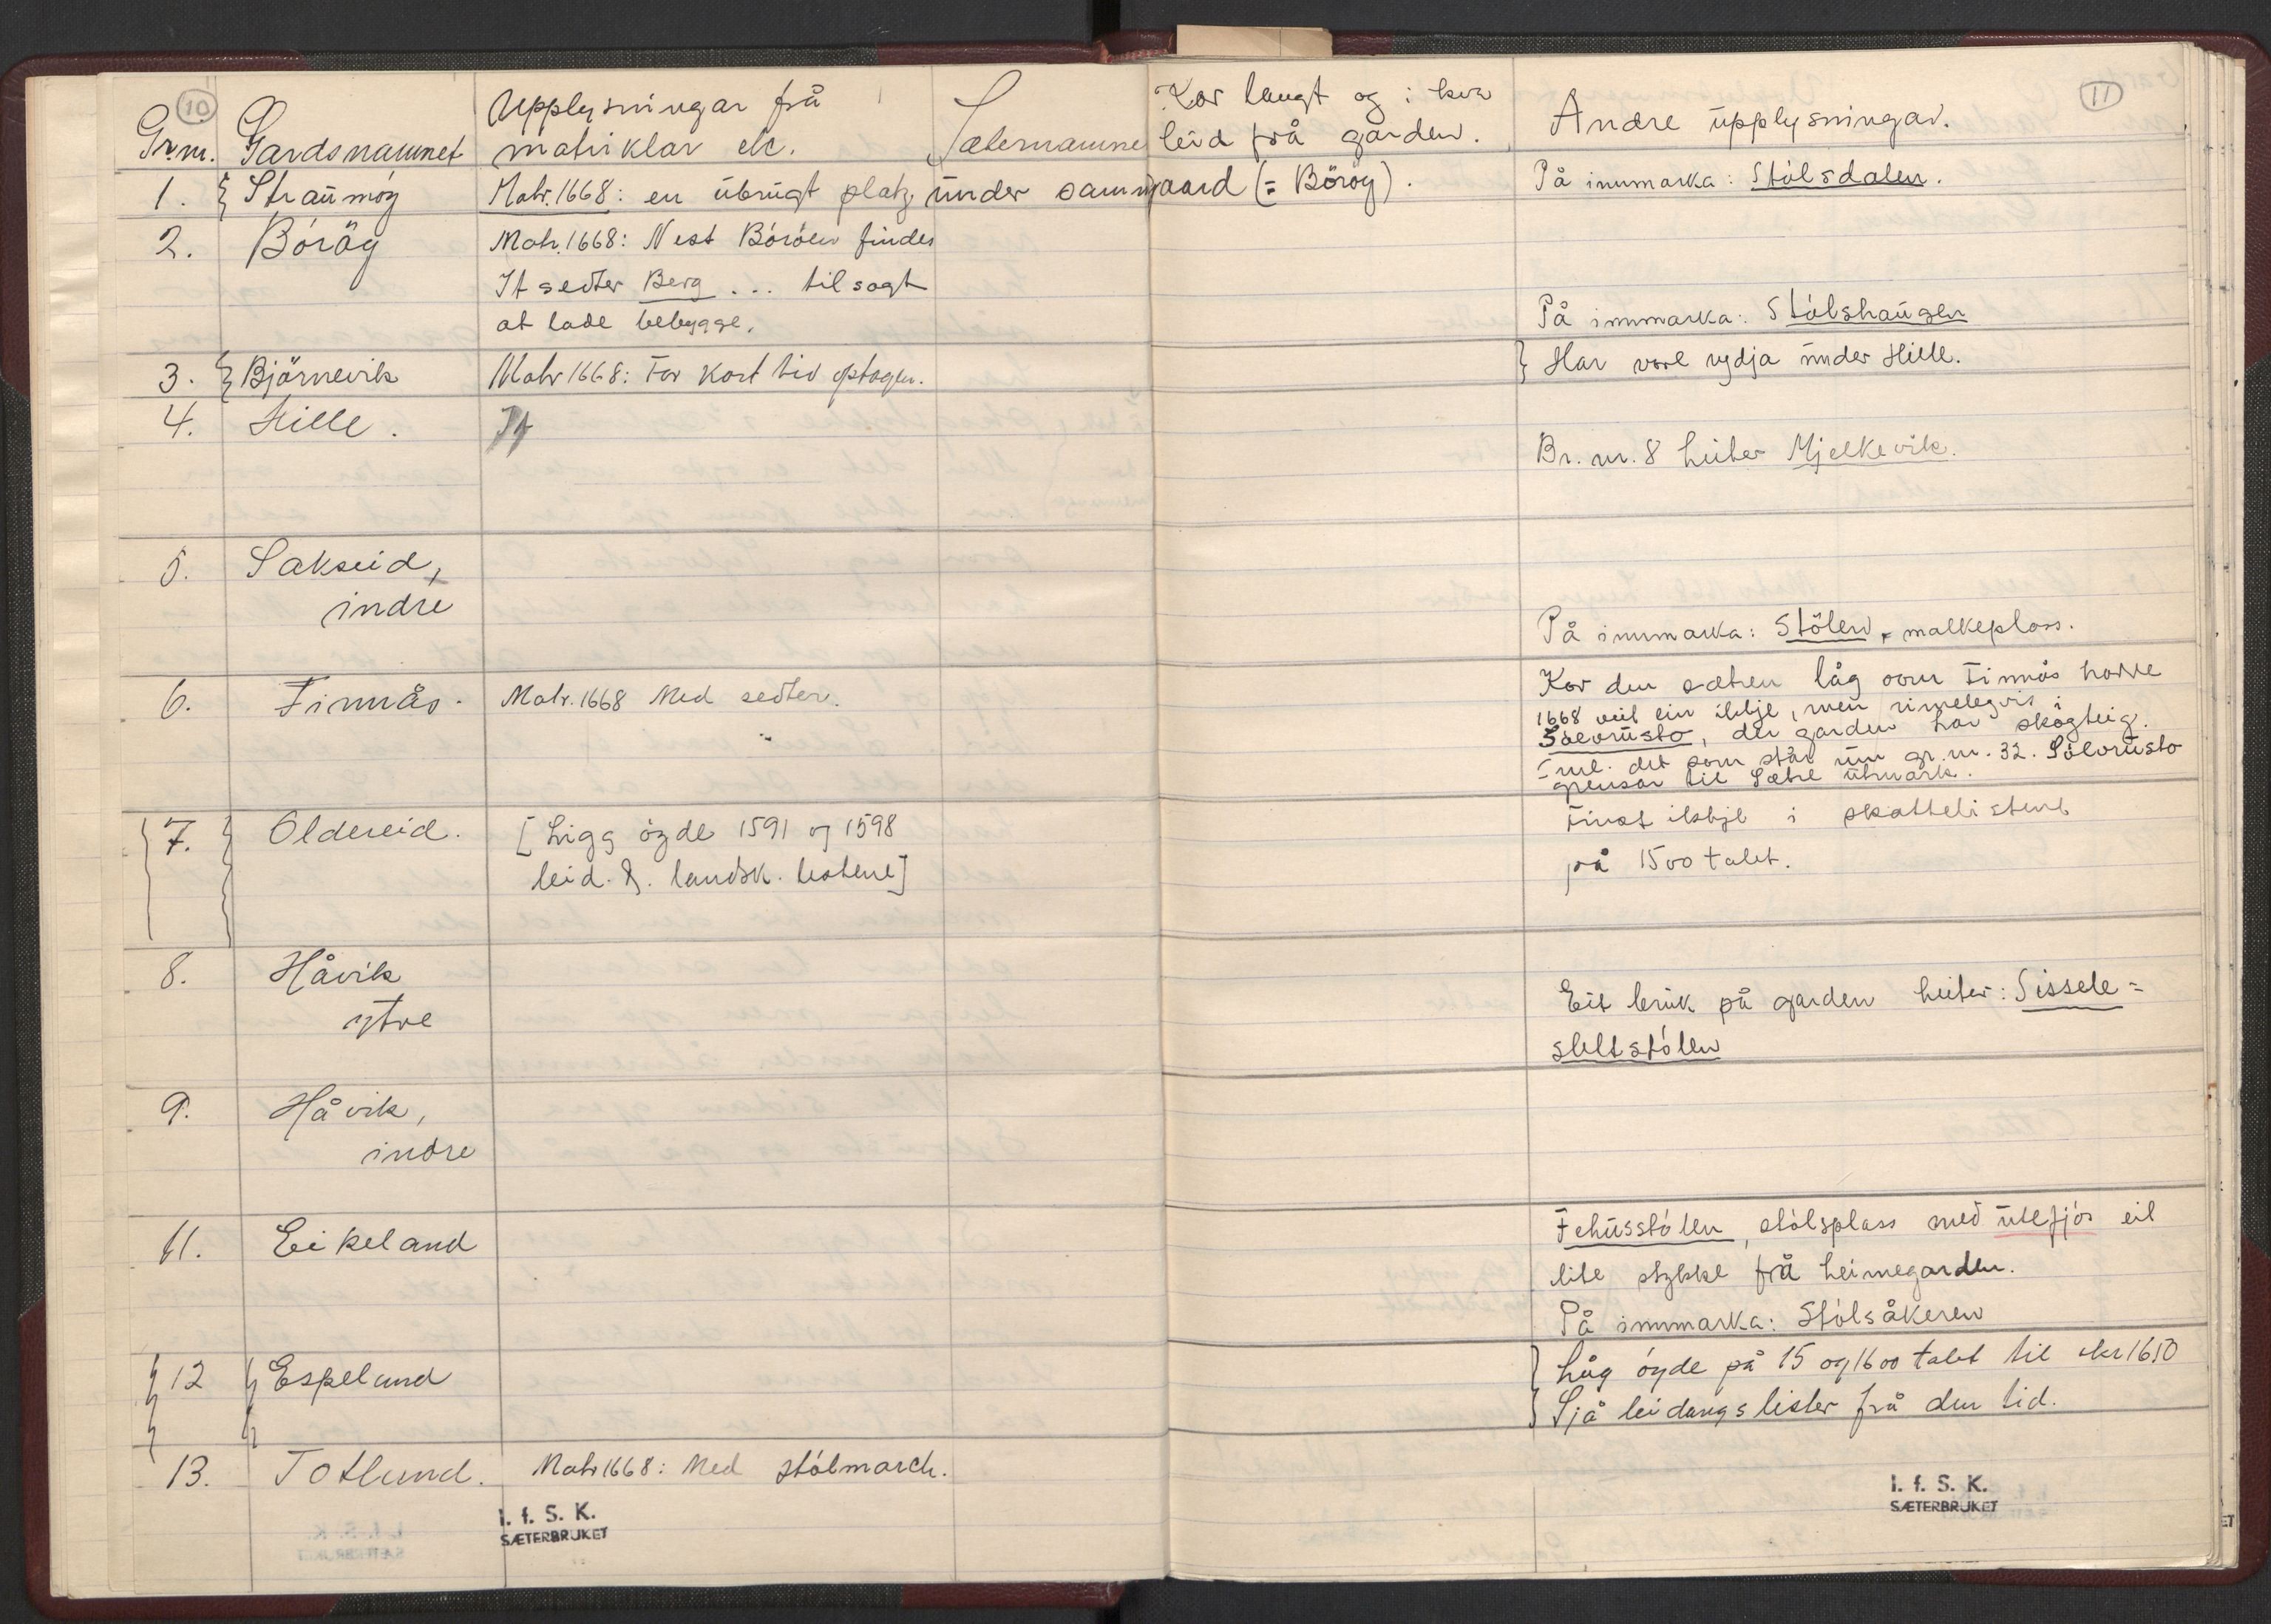 10
Gr.nr. Gardsnamnet Upplysningar frå matriklar etc. Sæternamne Kor langt og i kva leid frå garden. Andre upplysningar.
11
1. Straumøy Matr. 1668: en übrugt platz under samme gaard (= Börøy). På innmarka: Stölsdalen.
2. Böröy Matr. 1668: Nest Böröen findes
It sedter Berg ... tilsagt
at lade bebygge.
På innmarka: Stölshaugen
3. Björnevik Matr 1668: For kort tid optagen. Har vore rydja under Hille.
4. Hille. It
Br. nr. 8 heiter Mjelkevik.
5. Sakseid,
indre
På innmarka: Stölen, malkeplass.
6. Finnås. Matr. 1668 Med sedter.
Kor den sætren låg som Finnås hadde
1668 veit ein ikkje, men rimelegvis i
Sælvrusto, der garden har skogteig.
Sml. det som står um gr. nr. 32. Sålvrusto
grensar til Sætre utmark.
7. Oldereid. [Ligg öyde 1591 og 1598
leid. & landsk. listene]
Finst ikkje i skattelistene
på 1500 talet.
8. Håvik
ytre
Eit bruk på garden heiter: Sissele=
sletstölen
9. Håvik,
indre
11. Eikeland
Fehusstölen, stölsplass med utefjös eit
lite stykke frå heimegarden.
På innmarka: Stölsåkeren
12 Espeland
Låg öyde på 15 og 1600 talet til ikr 1650
Sjå leidangslister frå den tid.
13. Totland. Matr 1668: Med stölmarch.
I. f. S. K.
SÆTERBRUKET
I. f. S. K.
SÆTERBRUKET